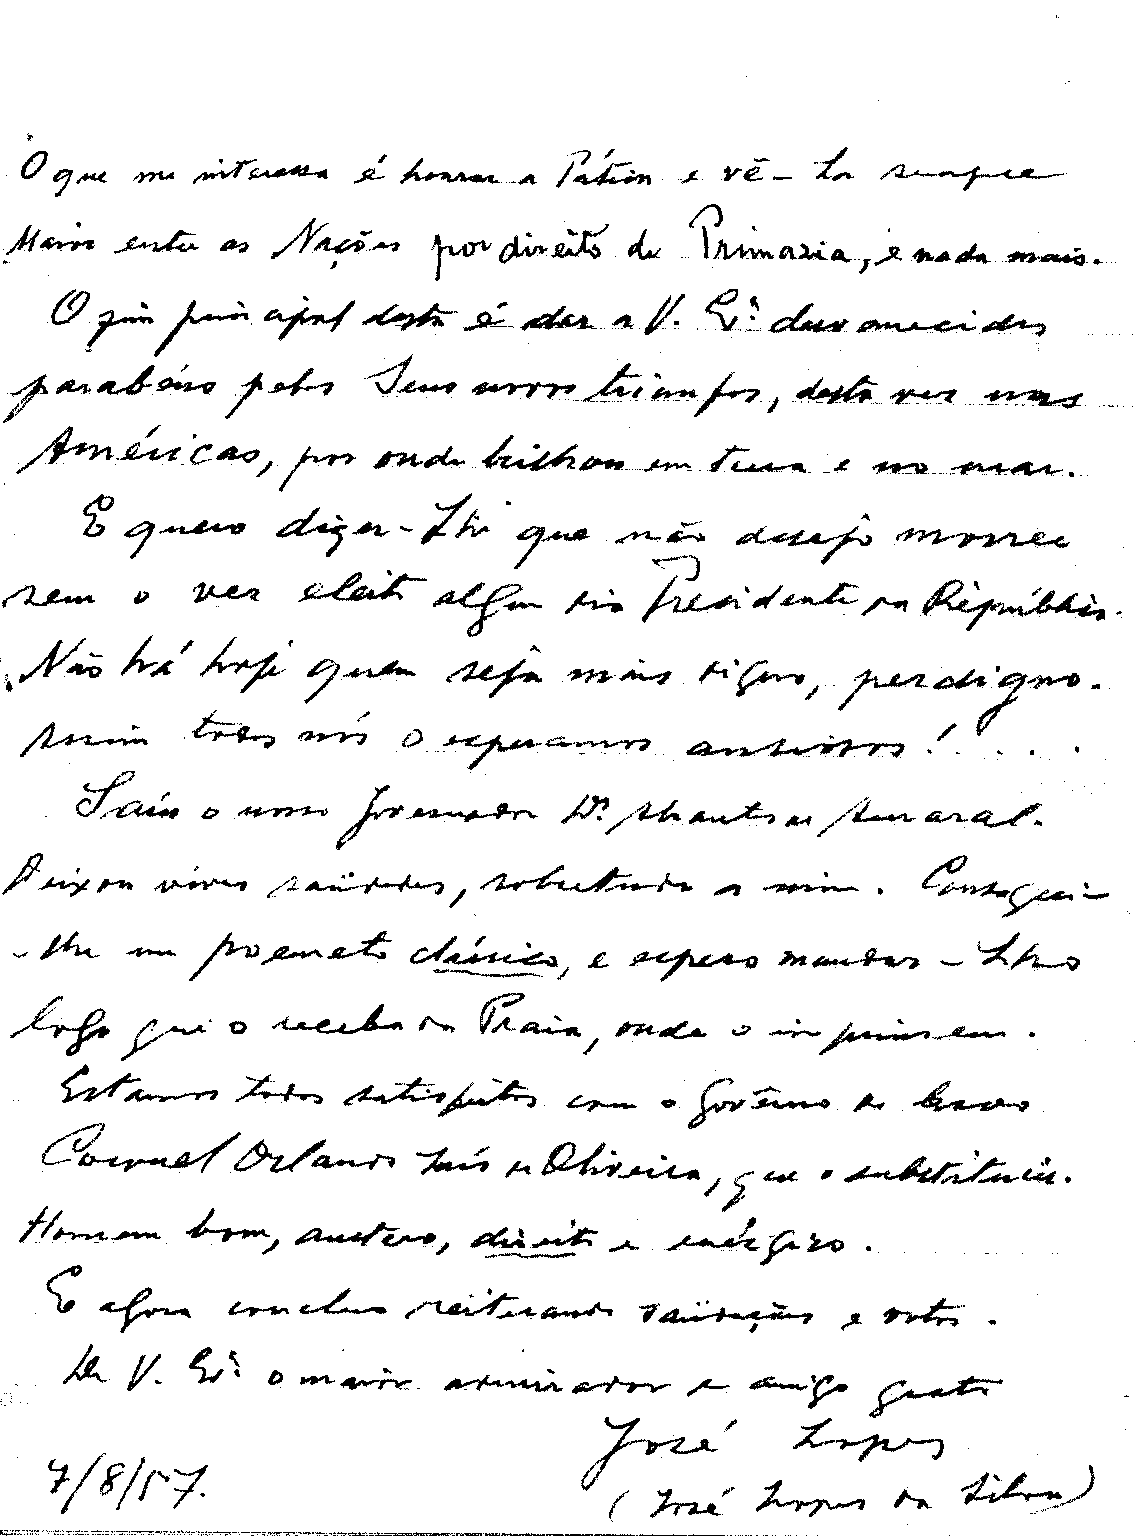 O que me interessa é honrar a Pátria e vê-la sempre
Maior entre as Nações por direito de Primazia, e nada mais.
O fim principal desta é dar a V. Exª desvanecidos
parabéns pelos Seus novos triunfos, desta vez nas
Américas, por onde brilhou em terra e no mar.
E quero dizer-Lhe que não desejo morrer
sem o ver eleito algum dia Presidente da República.
Não há hoje quem seja mais digno, perdigno.
Assim todos nós o esperamos ansiosos! . . . .
Saiu o nosso Governador Dr. Abrantes Amaral.
Deixou vivas saüdades, sobretudo a mim. Consagrei-
-lhe um poemeto clássico, e espero mandar-Lho
logo que o receba da Praia, onde o imprimem.
Estamos todos satisfeitos com o Govêrno do bravo
Coronel Orlando Luís de Oliveira, que o substituiu.
Homem bom, austero, direito e enérgico.
E agora concluo reiterando saüdações e votos.
De V. Exª o maior admirador e amigo grato
José Lopes
7/8/57.
(José Lopes da Silva)